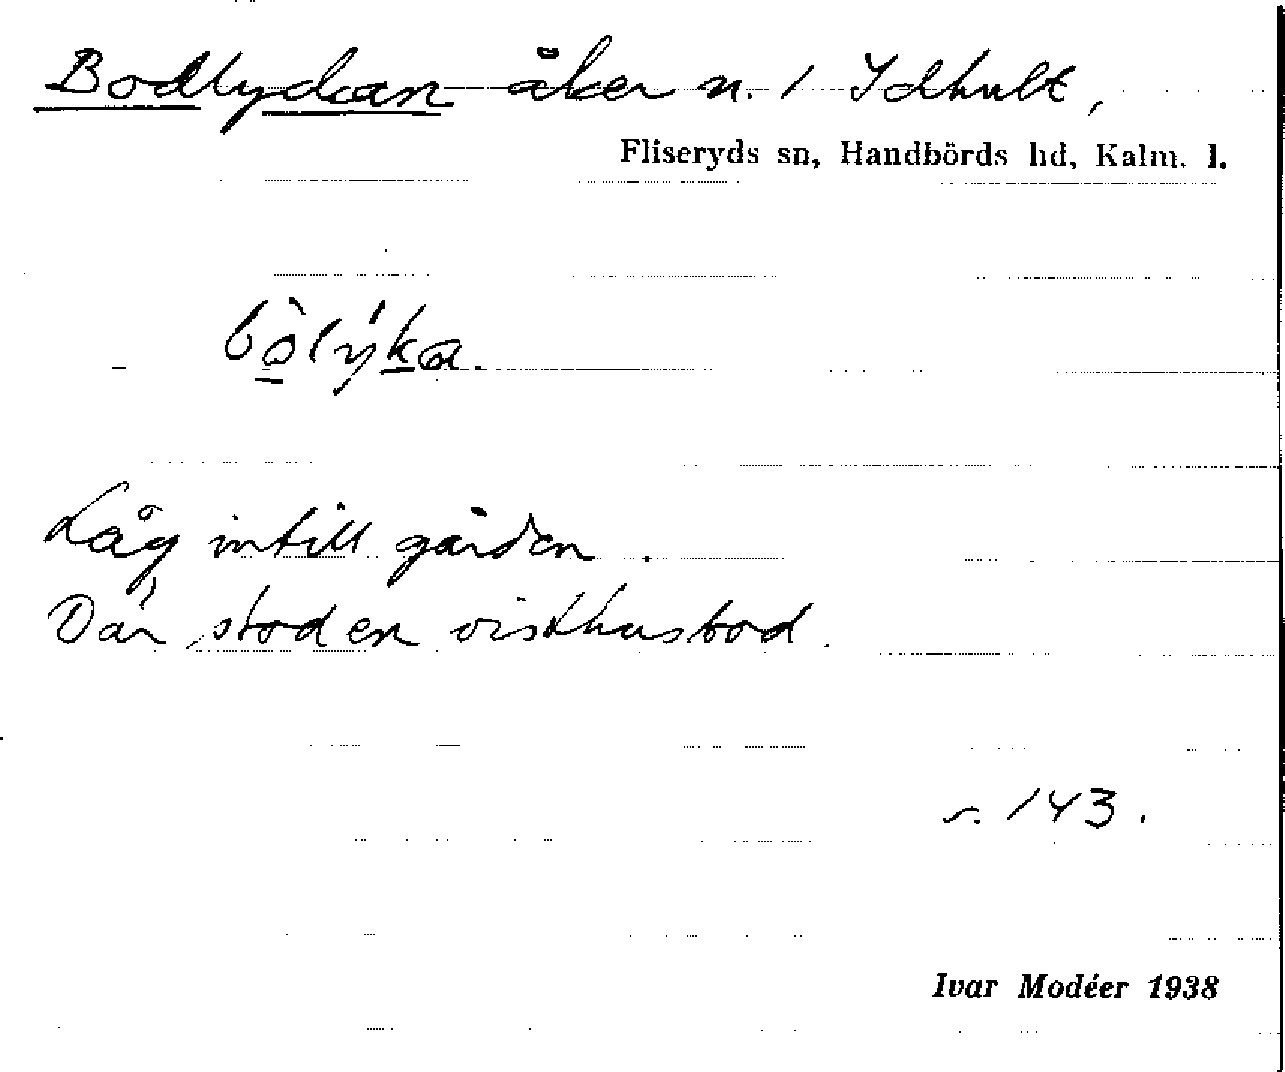 Bodlyckan åker n. 1 Idhult,
Fliseryds sn, Handbörds hd, Kalm. l.
bòlýka.
Låg intill gården.
Där stod en visthusbod.
s. 143.
Ivar Modéer 1938